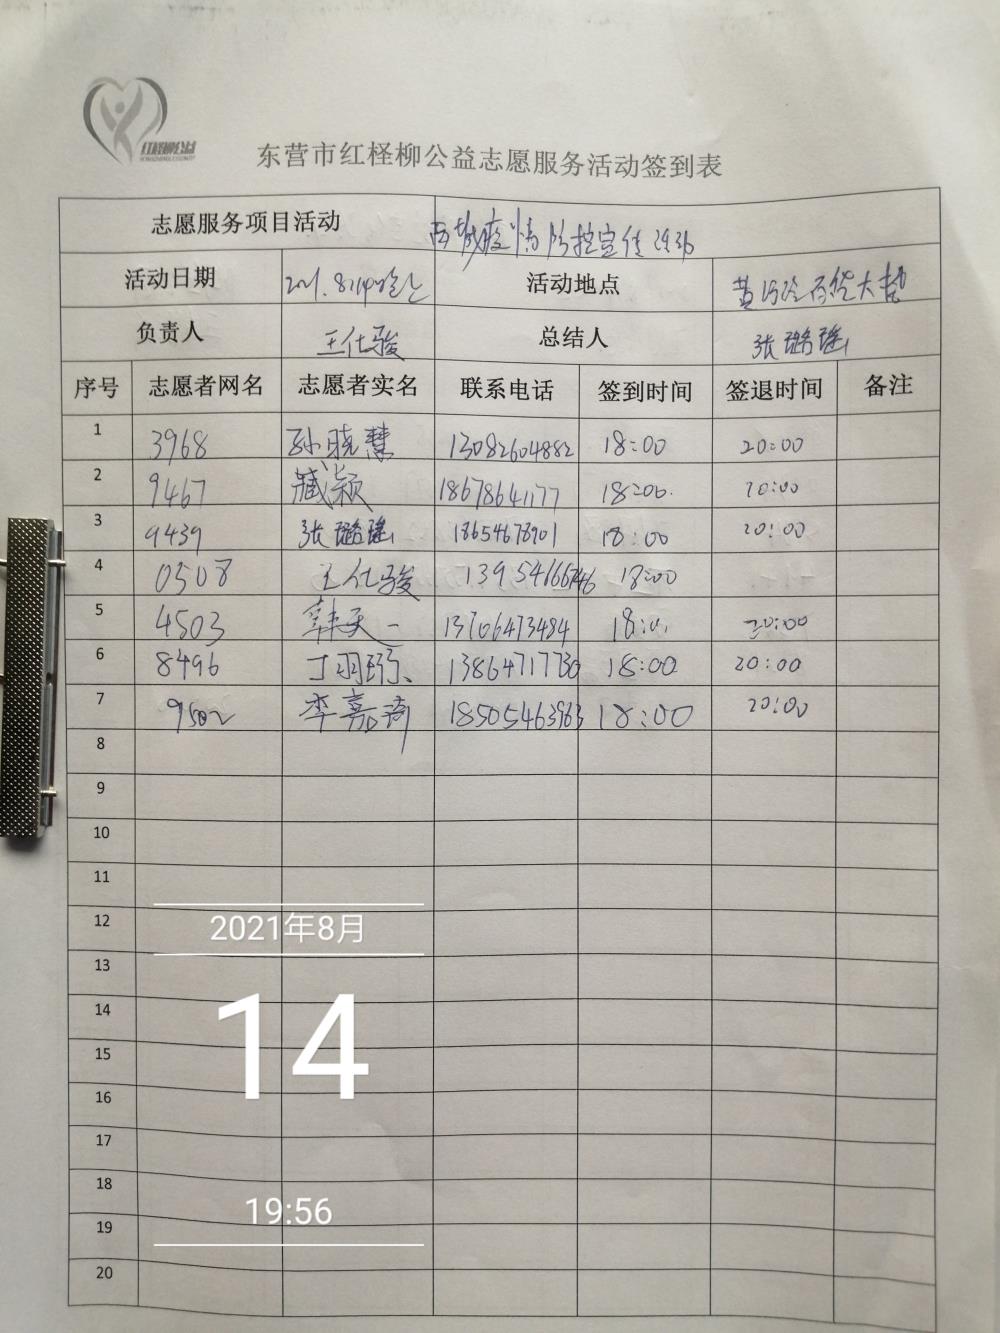 红柽柳公益
东营市红柽柳公益志愿服务活动签到表
志愿服务项目活动 西城疫情防控宣传活动
活动日期 2021.8.14晚上 活动地点 黄河路百货大楼
负责人 王仕骏 总结人 张璐瑶
序号 志愿者网名 志愿者实名 联系电话 签到时间 签退时间 备注
1 3968 孙晓慧 13082604882 18:00 20:00
2 9467 臧颖 18678641177 18:00. 20:00
3 9439 张璐瑶 18654678901 18:00 20:00
4 0508 王仕骏 18:00
5 4503 韩天一 13706473484 20:00
6 8496 丁羽 13864717730 18:00 20:00
7 9502 李嘉琦 18505463963 18:00 20:00
8
9
10
11
12
2021年8月
13
14
14
15
16
17
18
19:56
19
20